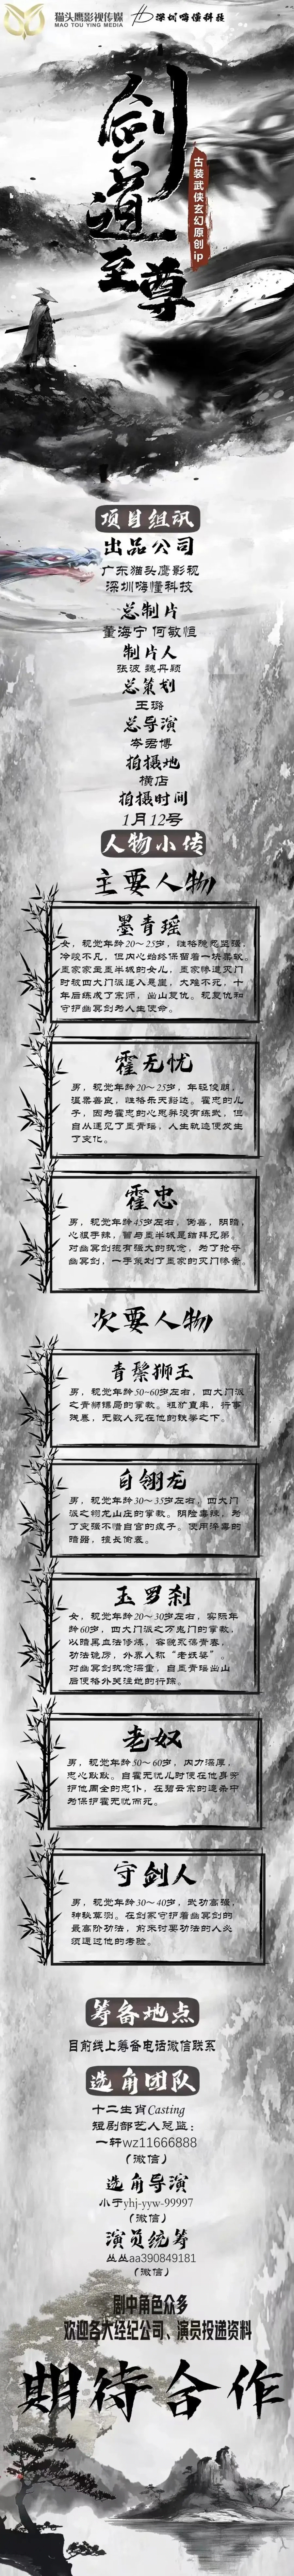 猫头鹰影视传媒
MAO TOU YING MEDIA
深圳嗨懂科技
剑道至尊
古装武侠玄幻原创ip
项目组讯
出品公司
广东猫头鹰影视
深圳嗨懂科技
总制片
董海宁 何敏恒
制片人
张波 魏丹颖
总策划
王璐
总导演
岑君博
拍摄地
横店
拍摄时间
1月12号
人物小传
主要人物
墨青瑶
女，视觉年龄20~25岁，性格隐忍坚强，
冷峻不凡，但内心始终保留着一块柔软。
墨家家主墨半城的女儿，墨家惨遭灭门
时被四大门派逼入悬崖，大难不死，十
年后练成了宗师，出山复仇。视复仇和
守护幽冥剑为人生使命。
霍无忧
男，视觉年龄20~25岁，年轻俊朗，
温柔善良，性格乐天豁达。霍忠的儿
子，因为霍忠的心思并没有练武，但
自从遇见了墨青瑶，人生轨迹便发生
了变化。
霍忠
男，视觉年龄45岁左右，伪善，阴险，
心狠手辣，曾与墨半城是结拜兄弟，
对幽冥剑抱有强大的执念，为了抢夺
幽冥剑，一手策划了墨家的灭门惨案。
次要人物
青鬃狮王
男，视觉年龄50~60岁左右，四大门派
之青狮镖局的掌教。粗犷直率，行事
残暴，无数人死在他的铁拳之下。
白翎龙
男，视觉年龄30~35岁左右，四大门
派之翎龙山庄的掌教。阴险毒辣，为
了变强不惜自宫的疯子。使用淬毒的
暗器，擅长偷袭。
玉罗刹
女，视觉年龄20~30岁左右，实际年
龄60岁，四大门派之万鬼门的掌教，
以暗黑血法修炼，容貌永葆青春，
功法诡厉，外界人称“老妖婆”。
对幽冥剑执念深重，自墨青瑶出山
后便格外关注她的行踪。
老奴
男，视觉年龄50~60岁，内力深厚，
忠心耿耿。自霍无忧儿时便在他身旁
护他周全的忠仆，在碧云宗的追杀中
为保护霍无忧而死。
守剑人
男，视觉年龄30~40岁，武功高强，
神秘莫测。在剑冢守护着幽冥剑的
最高阶功法，前来讨要功法的人必
须通过他的考验。
筹备地点
目前线上筹备电话微信联系
选角团队
十二生肖Casting
短剧部艺人总监：
一轩wz11666888
（微信）
选角导演
小于yhj-yyw-99997
（微信）
演员统筹
丛丛aa390849181
（微信）
剧中角色众多
欢迎各大经纪公司、演员投递资料
期待合作